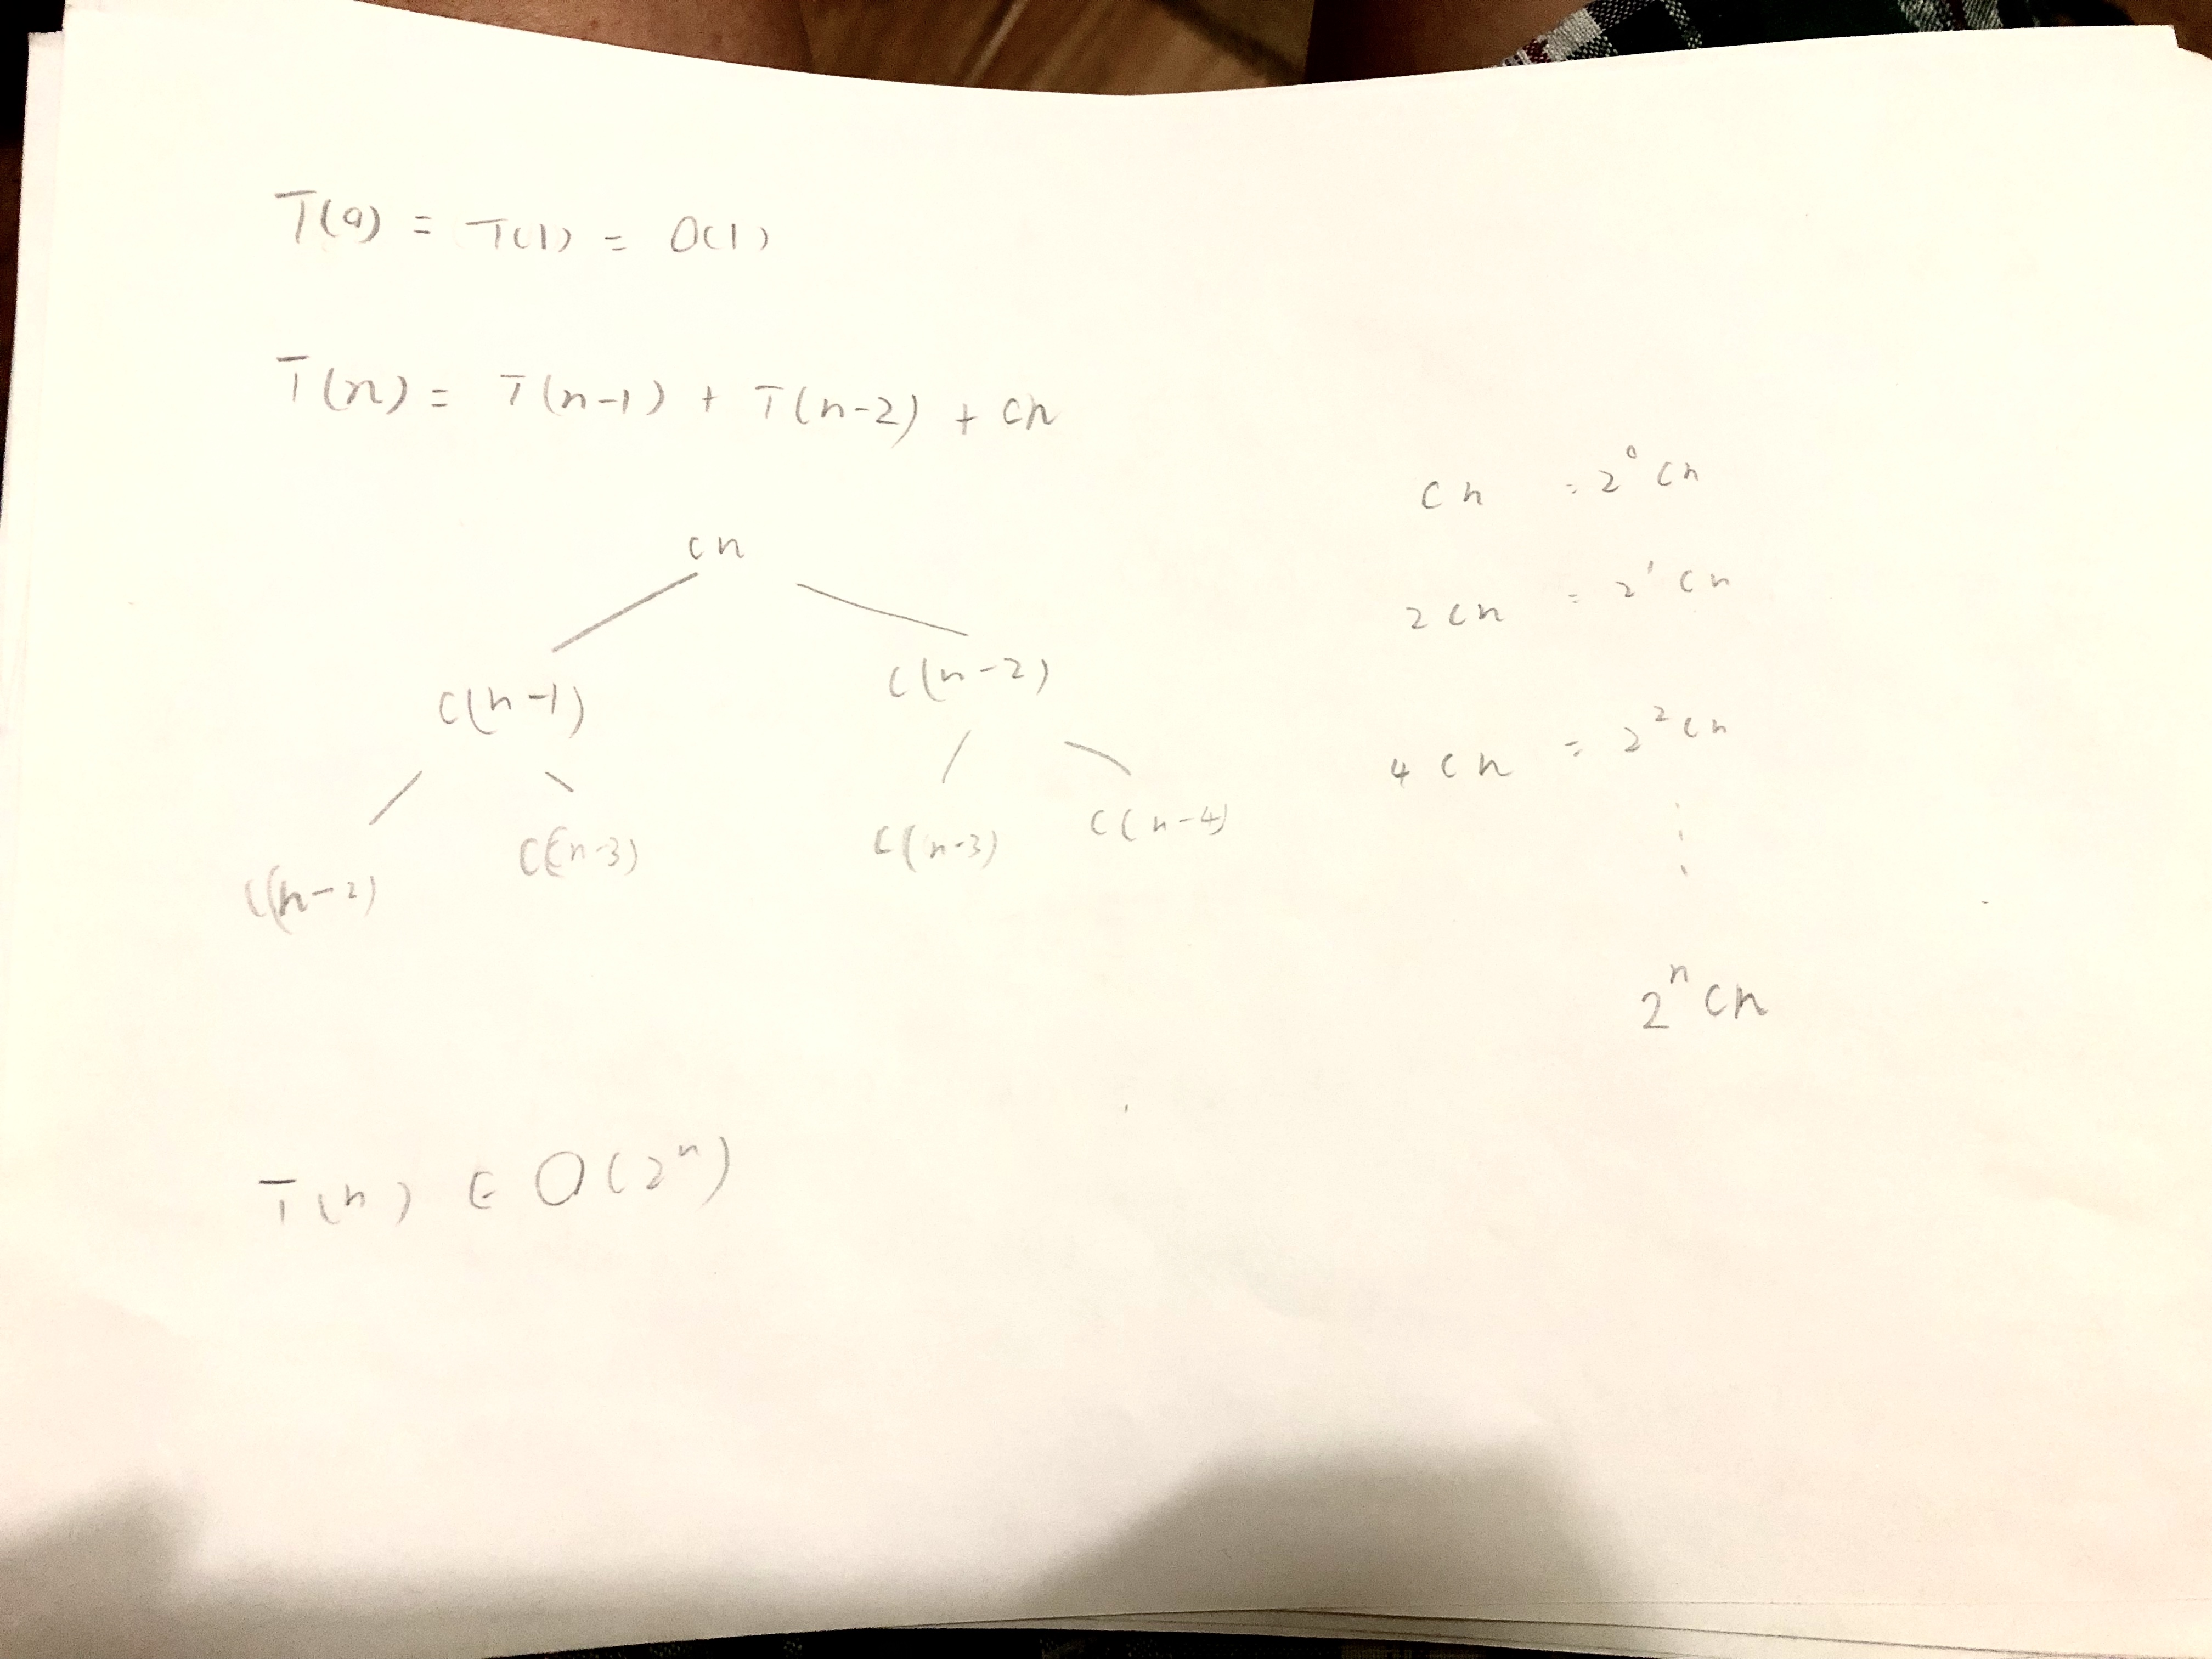 T(0) = T(1) = O(1)
T(n) = T(n-1) + T(n-2) + cn
cn
c(n-1) c(n-2)
c(n-2) c(n-3) c(n-3) c(n-4)
cn = 2⁰ cn
2cn = 2¹ cn
4cn = 2² cn
⋮
2ⁿ cn
T(n) ∈ O(2ⁿ)